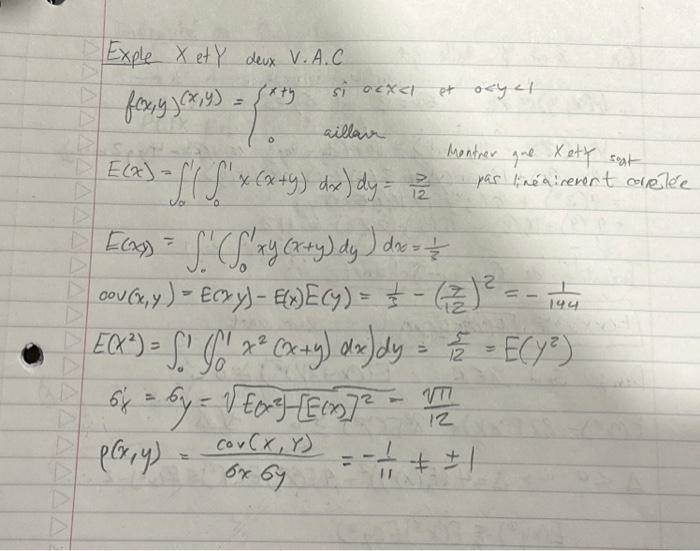 Exple X et Y deux V.A.C
f(x,y)(x,y) = { x+y si 0<x<1 et 0<y<1
0 aillair
Montrer que X et Y sont
pas linéairement correlée
E(x) = ∫₀¹ (∫₀¹ x(x+y) dx) dy = 7/12
E(xy) = ∫₀¹ (∫₀¹ xy(x+y) dy) dx = 1/3
cov(x,y) = E(xy) - E(x)E(y) = 1/3 - (7/12)² = - 1/144
E(X²) = ∫₀¹ (∫₀¹ x²(x+y) dx) dy = 5/12 = E(Y²)
σx = σy = √E(x²)-[E(x)]² = √11/12
ρ(x,y) = cov(X,Y)/σx σy = - 1/11 ≠ ±1